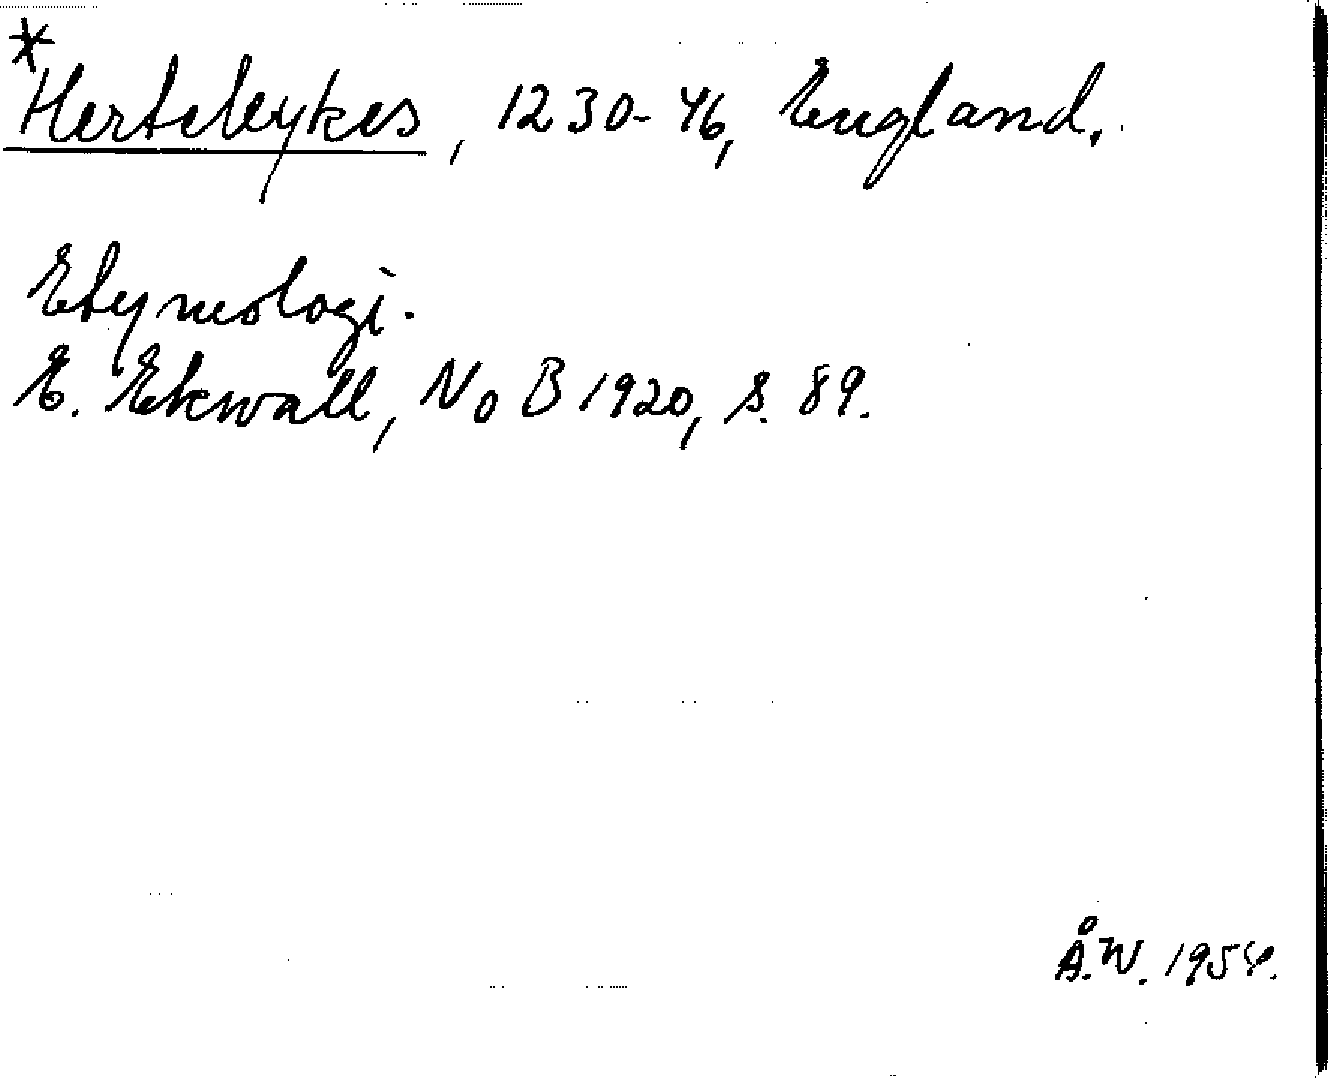 *Herteleykes, 1230-46, England.
Etymologi.
E. Ekwall, NoB 1920, s. 89.
Å.W. 1954.